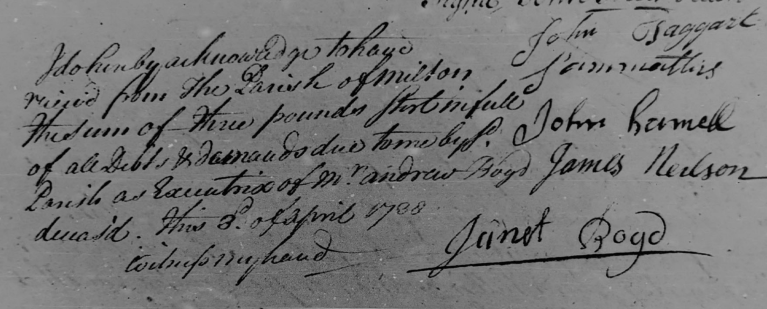 John Taggart
I do herby acknowledge to have
riciv'd from The Parish of milton
the sum of three pounds Ster in full
of all Debts & demands due to me by sd.
Parish as Executrix of Mr andrew Boyd
deceas'd. this 3d. of April 1788
witness my hand
John
James Neilson
Janet Boyd